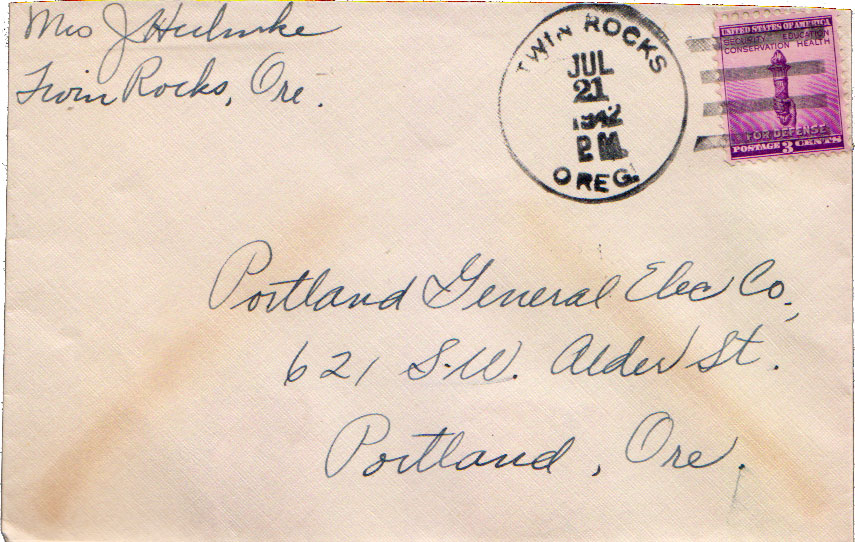 Mrs J Hulmke
Twin Rocks, Ore.
TWIN ROCKS
JUL
21
1942
P M
OREG.
UNITED STATES OF AMERICA
SECURITY EDUCATION
CONSERVATION HEALTH
FOR DEFENSE
POSTAGE 3 CENTS
Portland General Elec Co.,
621 S.W. Alder St.
Portland, Ore.